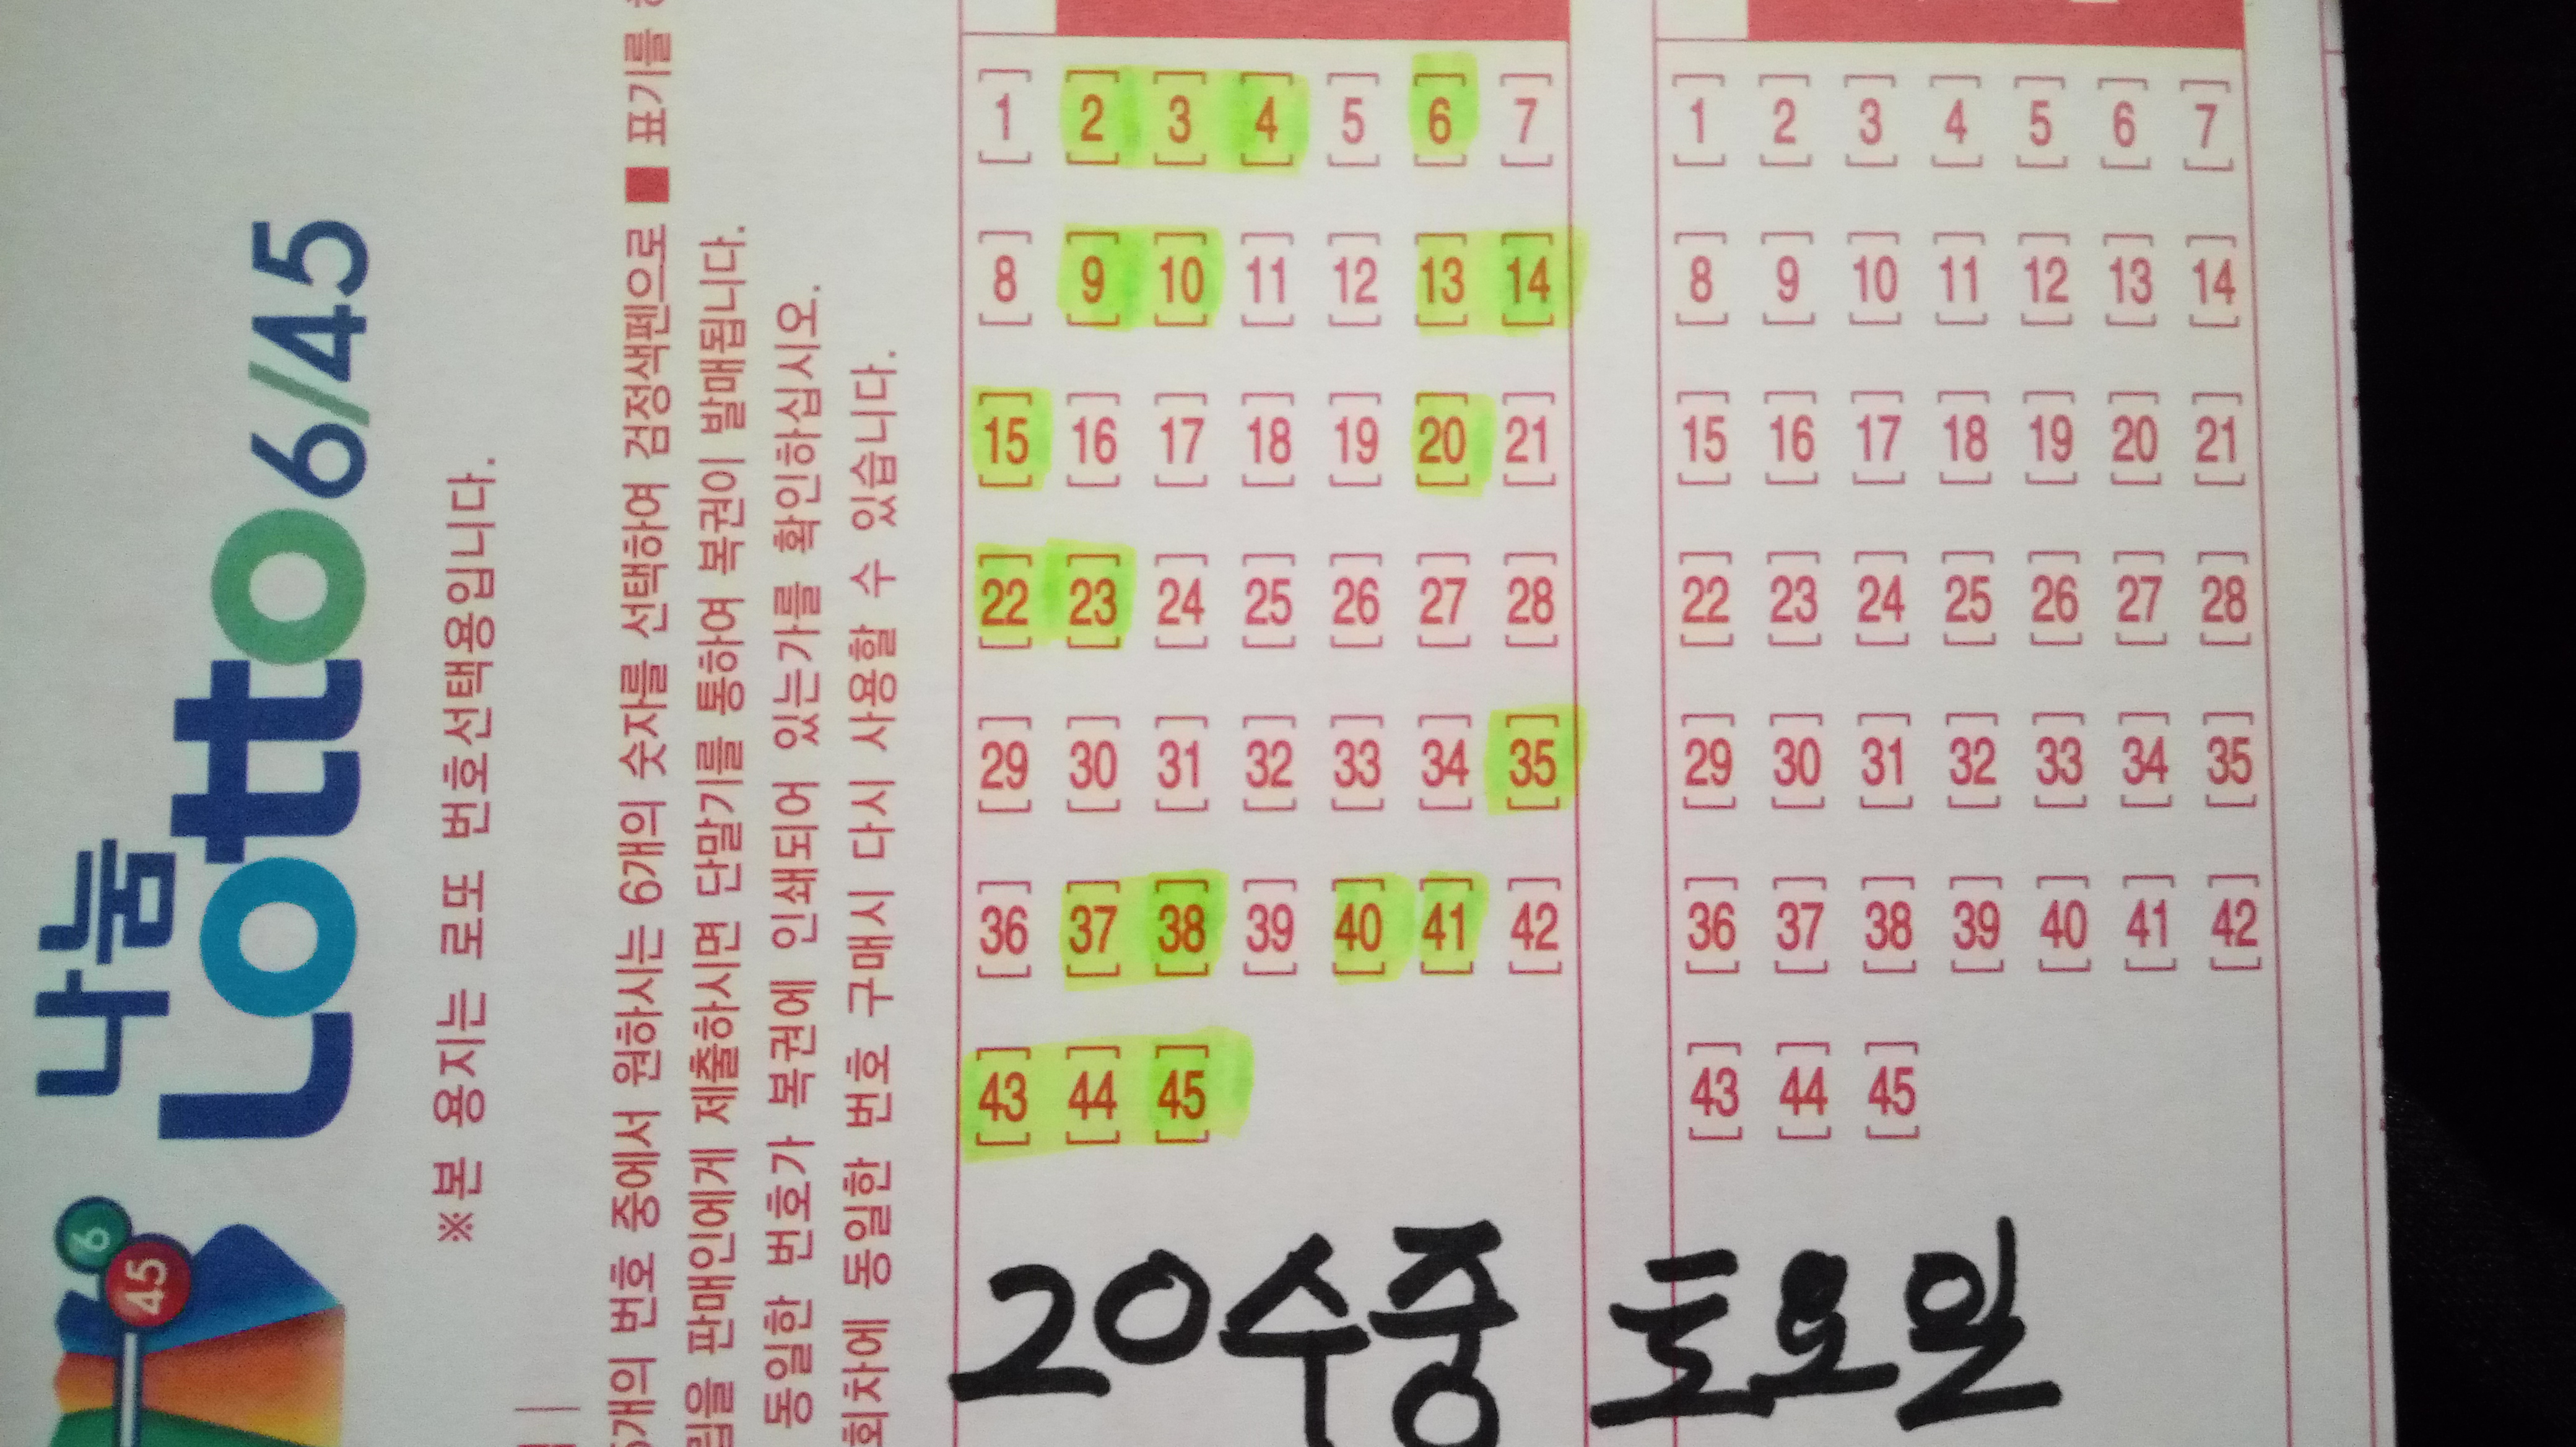 나눔
Lotto 6/45
6
45
※본 용지는 로또 번호선택용입니다.
개의 번호 중에서 원하시는 6개의 숫자를 선택하여 검정색펜으로 ■ 표기를
판매인에게 제출하시면 단말기를 통하여 복권이 발매됩니다.
동일한 번호가 복권에 인쇄되어 있는가를 확인하십시오.
회차에 동일한 번호 구매시 다시 사용할 수 있습니다.
1 2 3 4 5 6 7
8 9 10 11 12 13 14
15 16 17 18 19 20 21
22 23 24 25 26 27 28
29 30 31 32 33 34 35
36 37 38 39 40 41 42
43 44 45
1 2 3 4 5 6 7
8 9 10 11 12 13 14
15 16 17 18 19 20 21
22 23 24 25 26 27 28
29 30 31 32 33 34 35
36 37 38 39 40 41 42
43 44 45
20수중 토요일